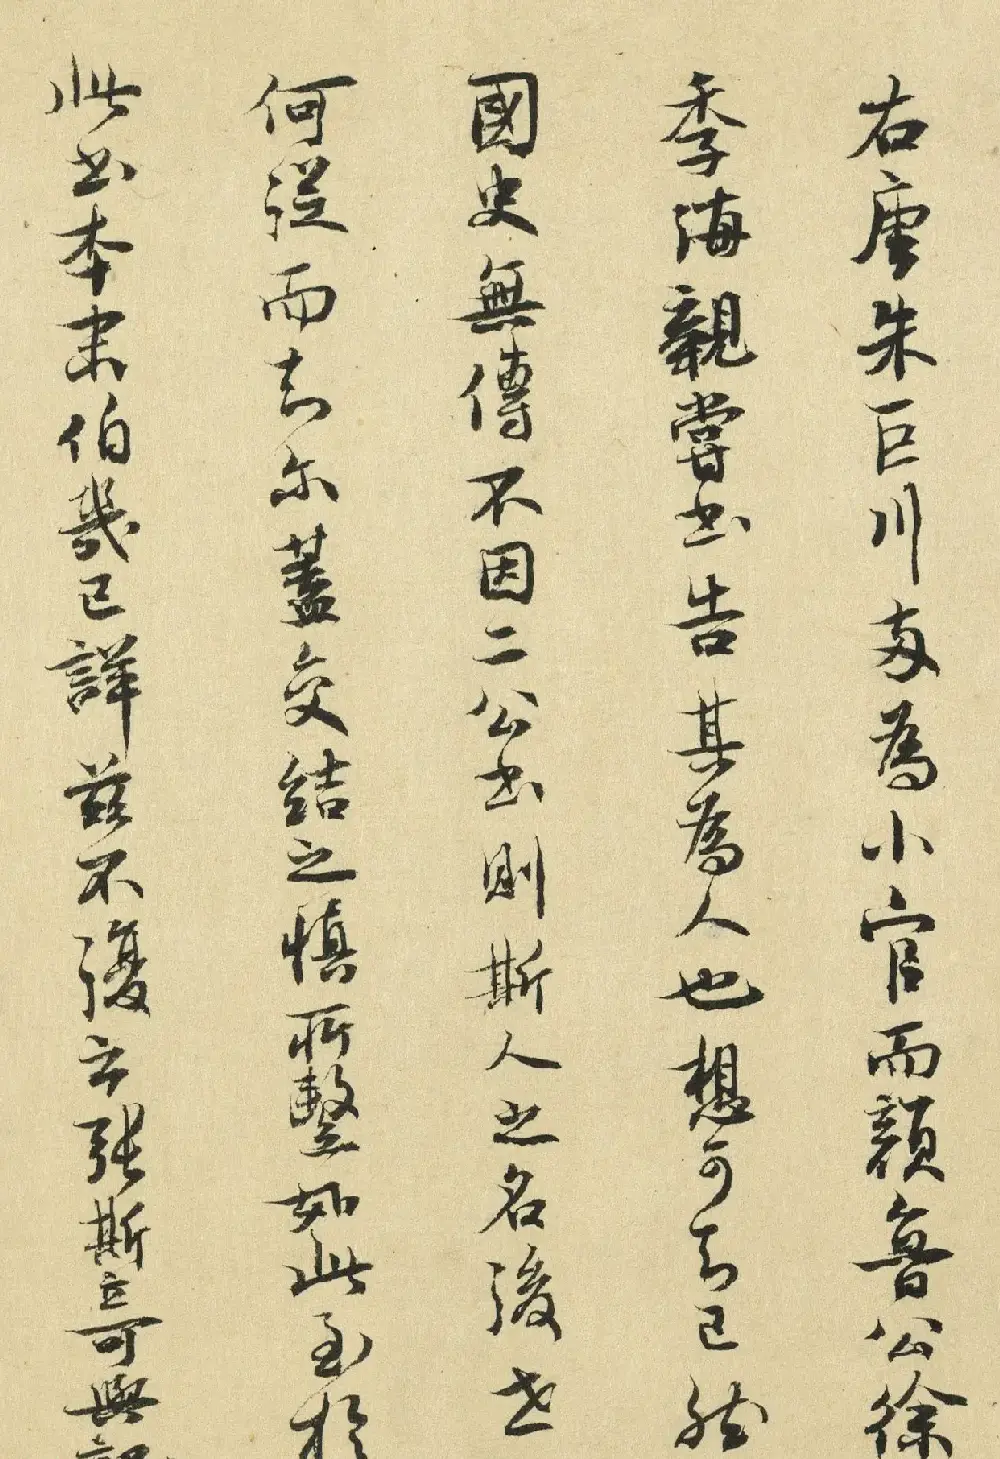 右唐朱巨川両為小官而顔魯公徐
季海親嘗書告其為人也想可知已然
國史無傳不因二公書則斯人之名後世
何從而知尔蓋交結之慎所繫如此至於
此書本末伯幾已詳茲不復云張斯立可與